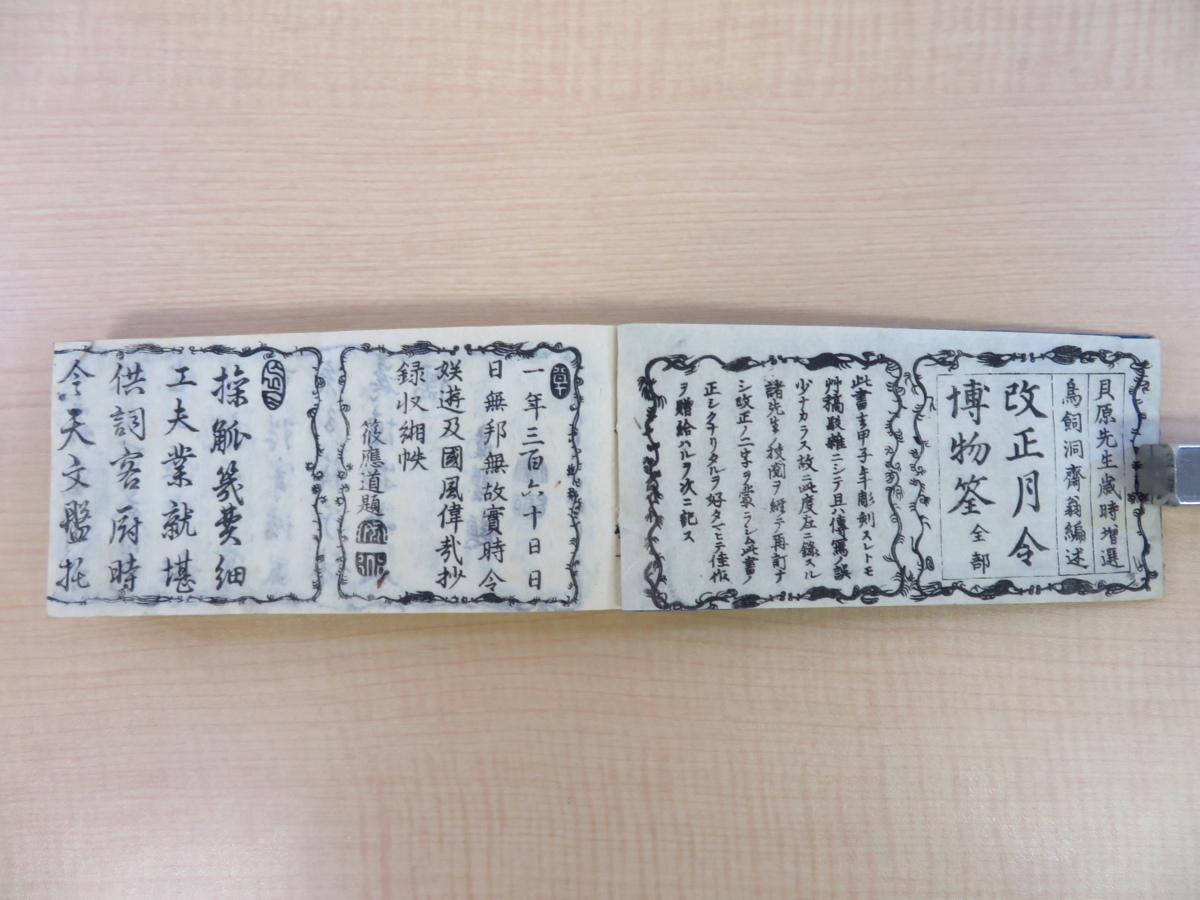 貝原先生歳時増選
鳥飼洞齋翁編述
改正月令
博物筌 全部
此書去甲子年彫刻スレトモ
艸稿駁雜ニシテ且ハ傳寫ノ誤
少ナカラス故ニ此度左ニ録スル
諸先生ノ校閲ヲ經テ再訂ナ
シ改正ノ二字ヲ蒙ラシム此書ノ
正シクナリタルヲ好タマヒテ佳作
ヲ贈給ハルヲ次ニ記ス
一年三百六十日日
日無邦無故實時令
娯遊及國風偉哉抄
録収緗帙
篠應道題
操觚幾費細
工夫業就堪
供詞客厨時
令天文盤托